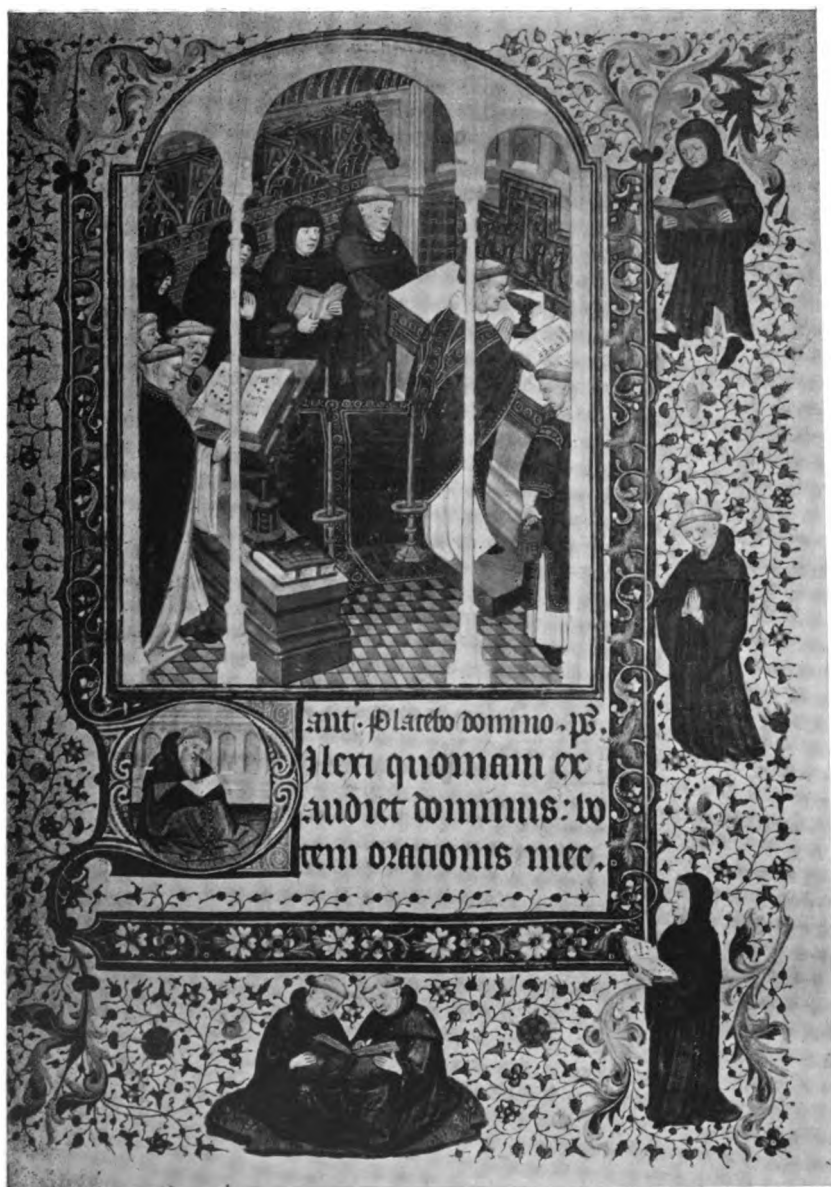 ant. Placebo domino. ps.
Dilexi quoniam ex
audiet dominus: vo
cem orationis mee.